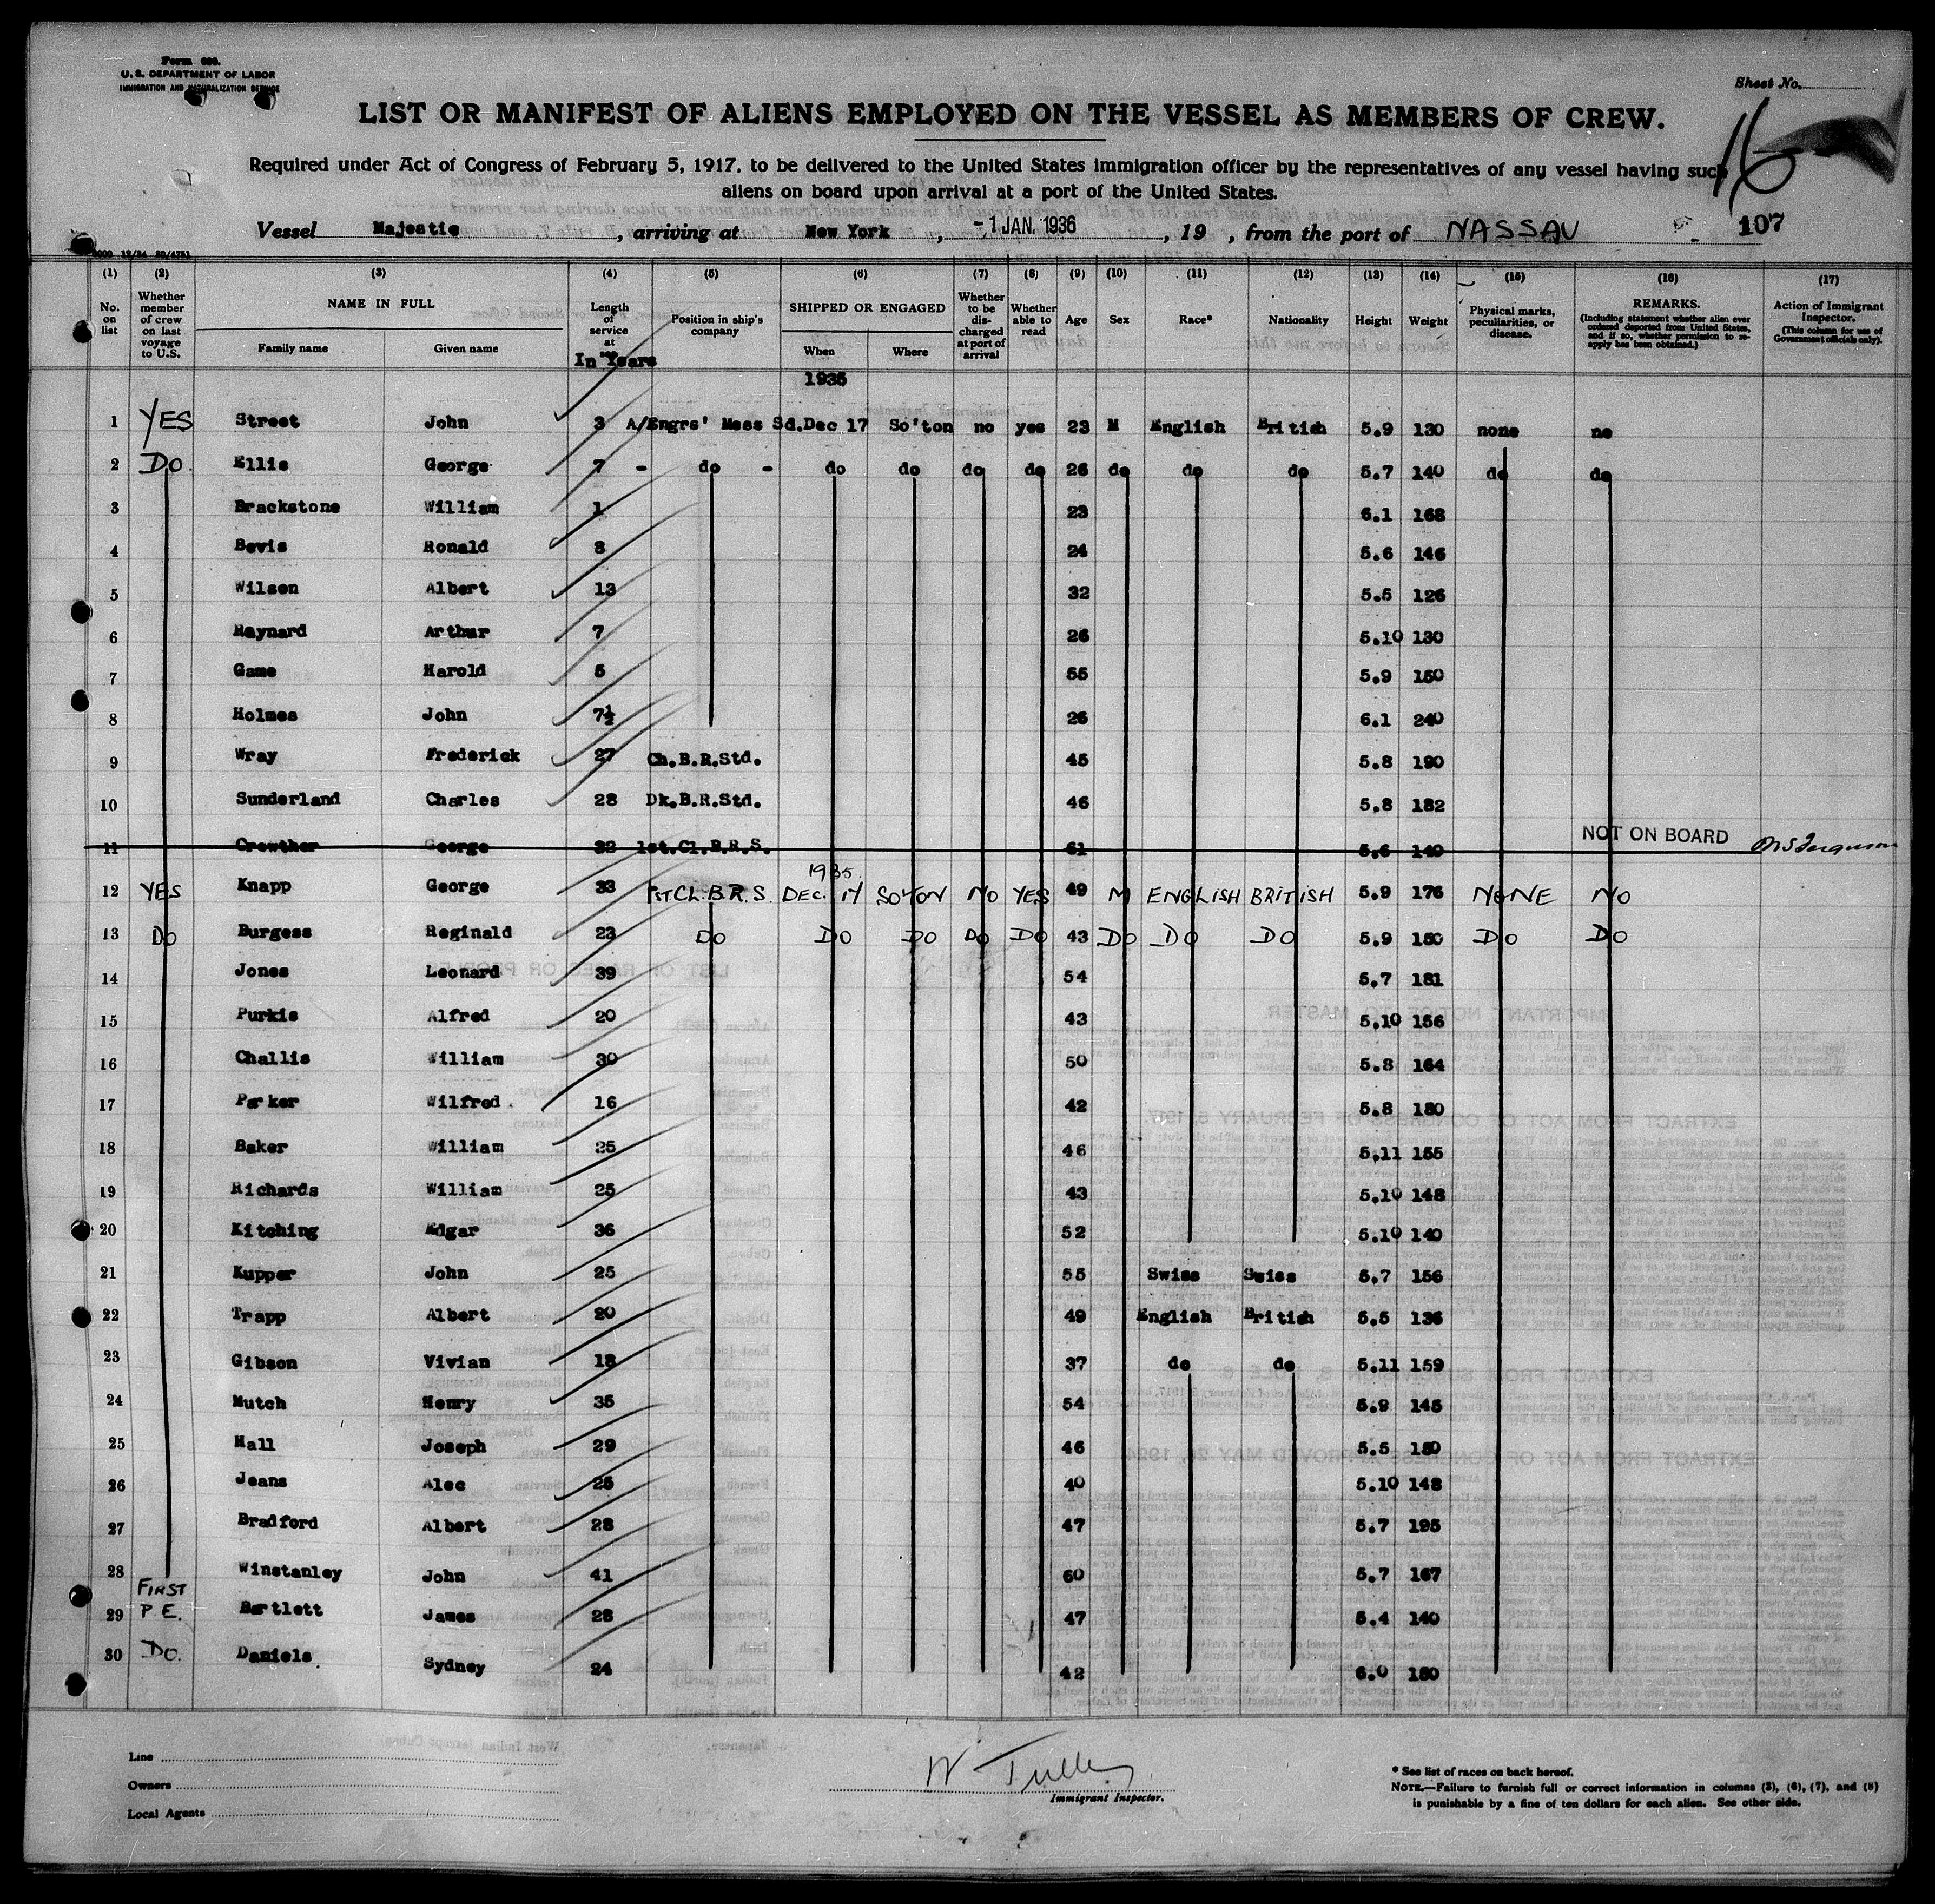 Form 680.
U. S. DEPARTMENT OF LABOR
IMMIGRATION AND NATURALIZATION SERVICE
Sheet No.
16
LIST OR MANIFEST OF ALIENS EMPLOYED ON THE VESSEL AS MEMBERS OF CREW.
Required under Act of Congress of February 5, 1917, to be delivered to the United States immigration officer by the representatives of any vessel having such
aliens on board upon arrival at a port of the United States.
Vessel Majestic, arriving at New York, -1 JAN. 1936, 19 , from the port of NASSAU 107
(1) (2) (3) (4) (5) (6) (7) (8) (9) (10) (11) (12) (13) (14) (15) (16) (17)
No. on list Whether member of crew on last voyage to U.S. NAME IN FULL Family name Given name Length of service at In Years Position in ship's company SHIPPED OR ENGAGED When Where Whether to be discharged at port of arrival Whether able to read Age Sex Race* Nationality Height Weight Physical marks, peculiarities, or disease. REMARKS. (Including statement whether alien ever ordered deported from United States, and if so, whether permission to reapply has been obtained.) Action of Immigrant Inspector. (This column for use of Government officials only).
1935
1 YES Street John 3 A/Engrs' Mess Sd. Dec 17 So'ton no yes 23 M English British 5.9 130 none no
2 Do. Ellis George 7 - do - do do do do 26 do do do 5.7 140 do do
3 Brackstone William 1 23 6.1 168
4 Bevis Ronald 8 24 5.6 146
5 Wilson Albert 13 32 5.5 126
6 Raynard Arthur 7 26 5.10 130
7 Game Harold 5 55 5.9 150
8 Holmes John 7½ 26 6.1 240
9 Wray Frederick 27 Ch.B.R.Std. 45 5.8 190
10 Sunderland Charles 28 Dk.B.R.Std. 46 5.8 182
11 Crowther George 32 1st.Cl.B.R.S. 61 5.6 140 NOT ON BOARD
1935.
12 YES Knapp George 33 1ST CL.B.R.S. DEC. 17 SO'TON NO YES 49 M ENGLISH BRITISH 5.9 176 NONE NO
13 DO Burgess Reginald 23 DO DO DO DO DO 43 DO DO DO 5.9 150 DO DO
14 Jones Leonard 39 54 5.7 181
15 Purkis Alfred 20 43 5.10 156
16 Challis William 30 50 5.8 164
17 Parker Wilfred. 16 42 5.8 180
18 Baker William 25 46 5.11 155
19 Richards William 25 43 5.10 148
20 Kitching Edgar 36 52 5.10 140
21 Kupper John 25 55 Swiss Swiss 5.7 156
22 Trapp Albert 20 49 English British 5.5 136
23 Gibson Vivian 18 37 do do 5.11 159
24 Mutch Henry 35 54 5.9 145
25 Hall Joseph 29 46 5.5 150
26 Jeans Alec 25 40 5.10 148
27 Bradford Albert 28 47 5.7 195
28 Winstanley John 41 60 5.7 167
FIRST
29 P.E. Bartlett James 28 47 5.4 140
30 Do. Daniels. Sydney 24 42 6.0 180
Line
Owners
Local Agents
Immigrant Inspector.
* See list of races on back hereof.
NOTE.—Failure to furnish full or correct information in columns (3), (6), (7), and (8)
is punishable by a fine of ten dollars for each alien. See other side.